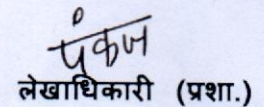 पंकज
लेखाधिकारी (प्रशा.)